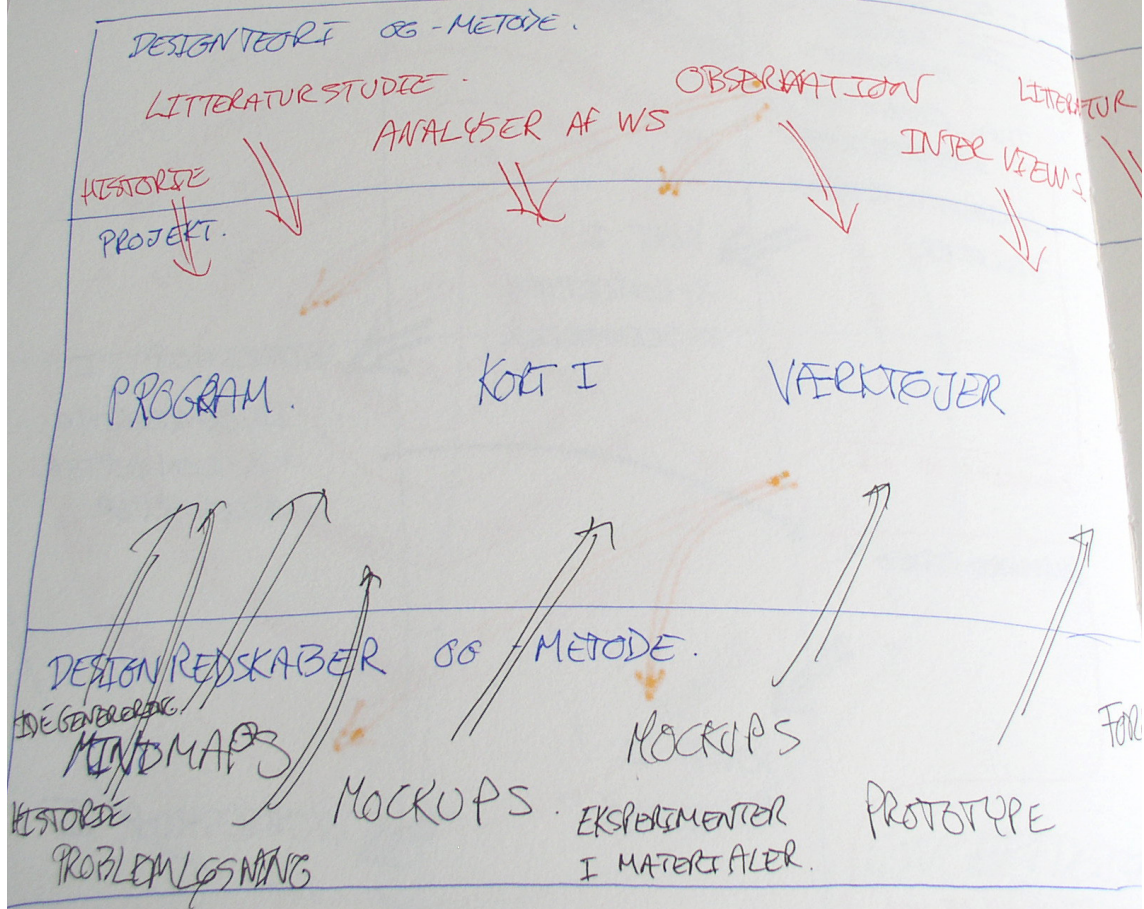 DESIGNTEORI OG -METODE.
LITTERATURSTUDIE.
OBSERVATION
LITTERATUR
ANALYSER AF WS
INTERVIEWS
HISTORIE
PROJEKT.
PROGRAM.
KORT I
VÆRKTØJER
DESIGNREDSKABER OG -METODE.
IDÉGENERERING
MINDMAPS
MOCKUPS
FOR
HISTORIE
MOCKUPS.
EKSPERIMENTER
I MATERIALER.
PROTOTYPE
PROBLEMLØSNING